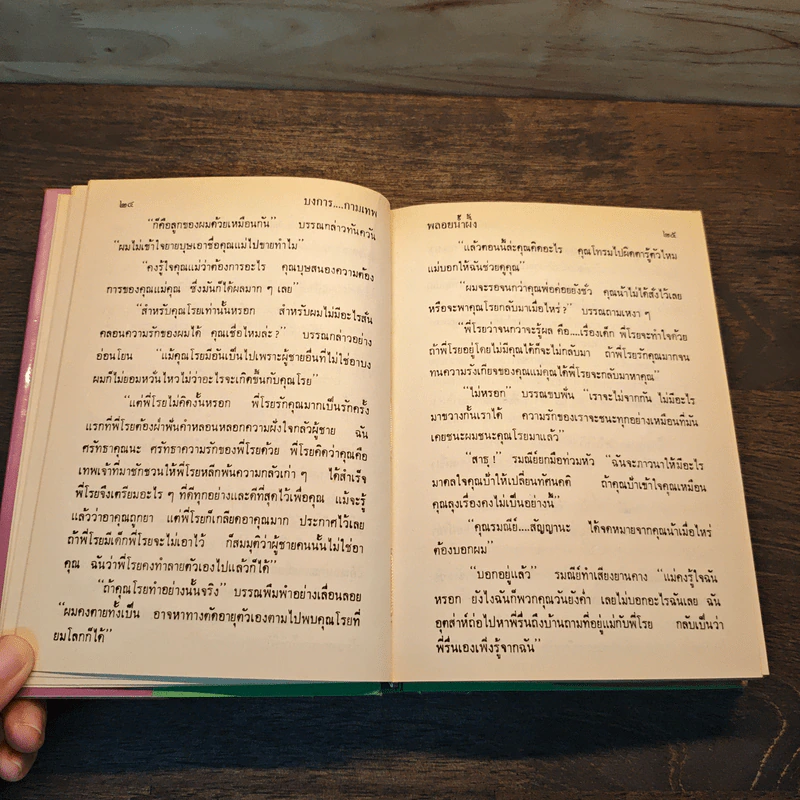 ๒๔
บงการ....กามเทพ
“ก็คือลูกของผมด้วยเหมือนกัน” บรรณกล่าวทันควัน
“ผมไม่เข้าใจยายบุษเอาชื่อคุณแม่ไปขายทำไม”
“คงรู้ใจคุณแม่ว่าต้องการอะไร คุณบุษสนองความต้อง
การของคุณแม่คุณ ซึ่งมันก็ได้ผลมาก ๆ เลย”
“สำหรับคุณโรยเท่านั้นหรอก สำหรับผมไม่มีอะไรสั่น
คลอนความรักของผมได้ คุณเชื่อไหมล่ะ?” บรรณกล่าวอย่าง
อ่อนโยน “แม้คุณโรยมีอันเป็นไปเพราะผู้ชายอื่นที่ไม่ใช่อาบง
ผมก็ไม่ยอมหวั่นไหวไม่ว่าอะไรจะเกิดขึ้นกับคุณโรย”
“แต่พี่โรยไม่คิดงั้นหรอก พี่โรยรักคุณมากเป็นรักครั้ง
แรกที่พี่โรยต้องฝ่าฟันคำหลอนหลอกความฝังใจกลัวผู้ชาย ฉัน
ศรัทธาคุณนะ ศรัทธาความรักของพี่โรยด้วย พี่โรยคิดว่าคุณคือ
เทพเจ้าที่มาชักชวนให้พี่โรยหลีกพ้นความกลัวเก่า ๆ ได้สำเร็จ
พี่โรยจึงเตรียมอะไร ๆ ที่ดีทุกอย่างและดีที่สุดไว้เพื่อคุณ แม้จะรู้
แล้วว่าอาคุณถูกยา แต่พี่โรยก็เกลียดอาคุณมาก ประกาศไว้เลย
ถ้าพี่โรยมีเด็กพี่โรยจะไม่เอาไว้ ก็สมมุติว่าผู้ชายคนนั้นไม่ใช่อา
คุณ ฉันว่าพี่โรยคงทำลายตัวเองไปแล้วก็ได้”
“ถ้าคุณโรยทำอย่างนั้นจริง” บรรณพึมพำอย่างเลื่อนลอย
“ผมคงตายทั้งเป็น อาจหาทางตัดอายุตัวเองตามไปพบคุณโรยที่
ยมโลกก็ได้”
พลอยน้ำผึ้ง
๒๕
“แล้วตอนนี้ล่ะคุณคิดอะไร คุณโทรมไปผิดตารู้ตัวไหม
แม่บอกให้ฉันช่วยดูคุณ”
“ผมจะรอจนกว่าคุณพ่อค่อยยังชั่ว คุณน้าไม่ได้สั่งไว้เลย
หรือจะพาคุณโรยกลับมาเมื่อไหร่?” บรรณถามเหงา ๆ
“พี่โรยว่าจนกว่าจะรู้ผล คือ....เรื่องเด็ก พี่โรยจะทำใจด้วย
ถ้าพี่โรยอยู่โดยไม่มีคุณได้ก็จะไม่กลับมา ถ้าพี่โรยรักคุณมากจน
ทนความรังเกียจของคุณแม่คุณได้พี่โรยจะกลับมาหาคุณ”
“ไม่หรอก” บรรณขบฟัน “เราจะไม่จากกัน ไม่มีอะไร
มาขวางกั้นเราได้ ความรักของเราจะชนะทุกอย่างเหมือนที่มัน
เคยชนะผมชนะคุณโรยมาแล้ว”
“สาธุ!” รมณีย์ยกมือท่วมหัว “ฉันจะภาวนาให้มีอะไร
มาดลใจคุณป้าให้เปลี่ยนทัศนคติ ถ้าคุณป้าเข้าใจคุณเหมือน
คุณลุงเรื่องคงไม่เป็นอย่างนี้”
“คุณรมณีย์....สัญญานะ ได้จดหมายจากคุณน้าเมื่อไหร่
ต้องบอกผม”
“บอกอยู่แล้ว” รมณีย์ทำเสียงยานคาง “แม่คงรู้ใจฉัน
หรอก ยังไงฉันก็พวกคุณวันยังค่ำ เลยไม่บอกอะไรฉันเลย ฉัน
อุตส่าห์ถ่อไปหาพี่รื่นถึงบ้านถามที่อยู่แม่กับพี่โรย กลับเป็นว่า
พี่รื่นเองเพิ่งรู้จากฉัน”